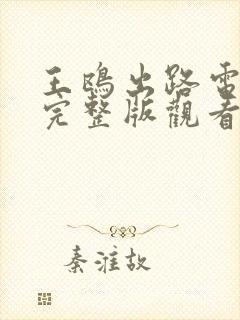 王鴎出路電
完整版觀看
秦淮故